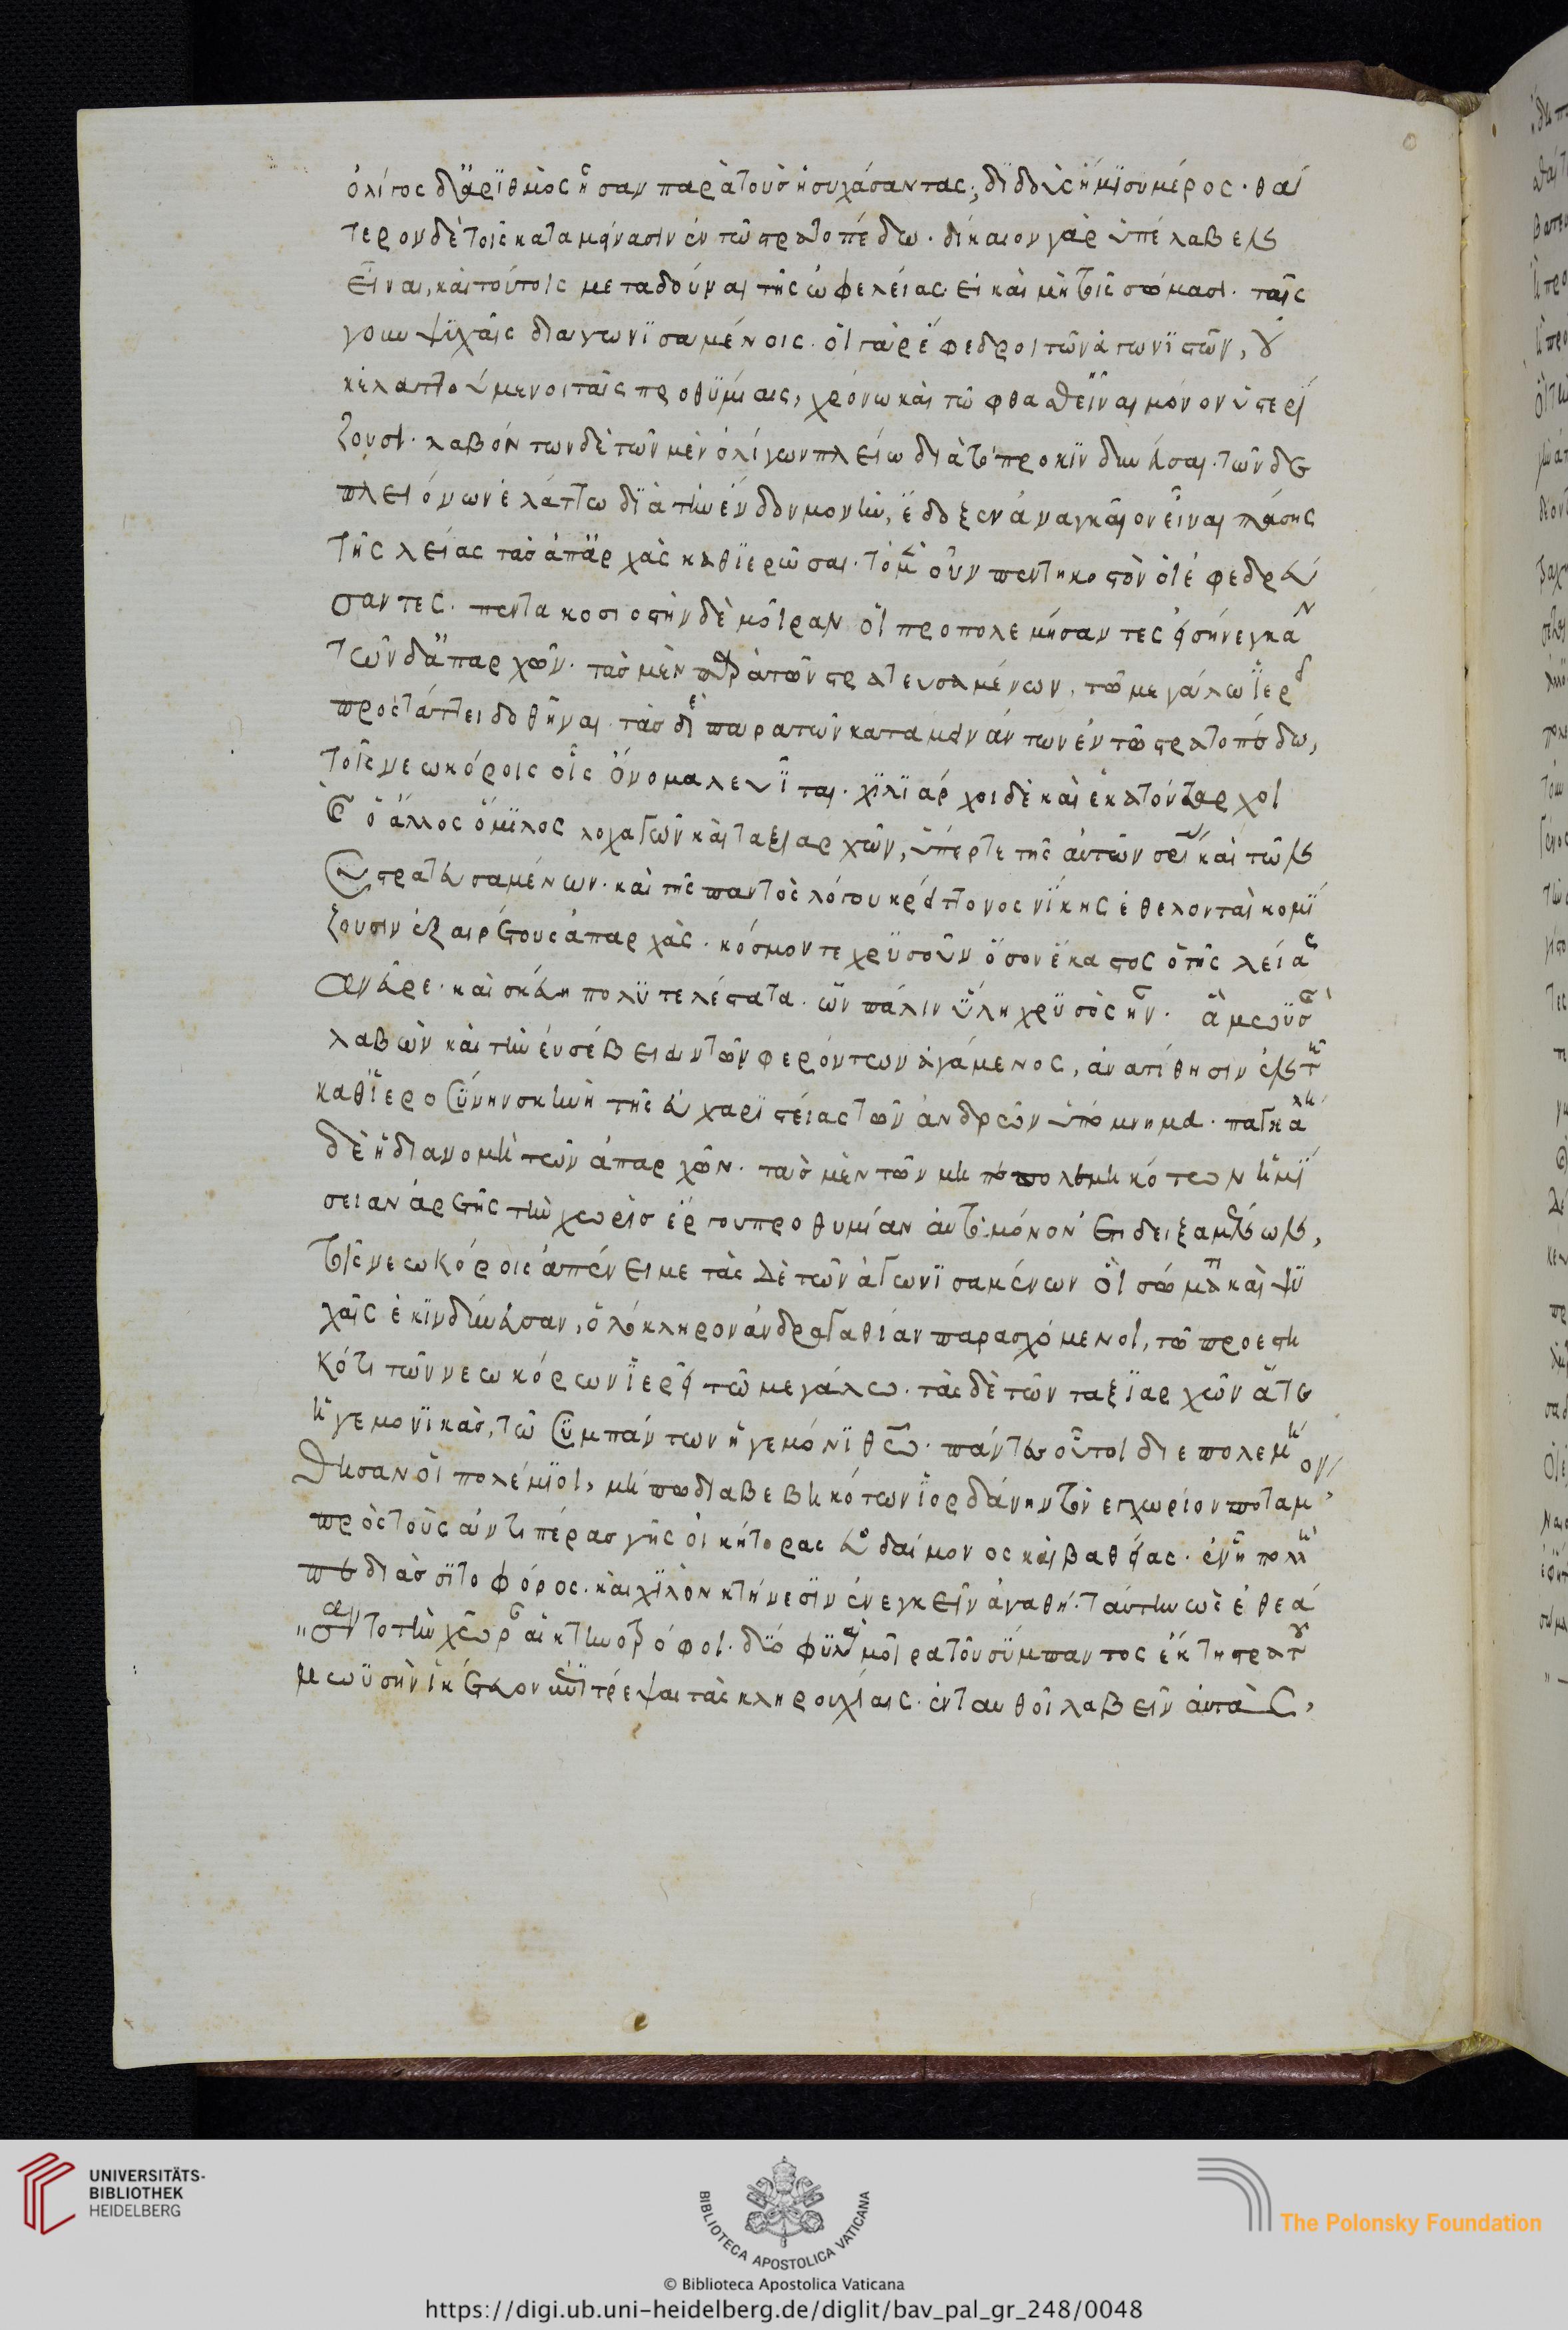 ὀλίγος δ᾽ ἀριθμὸς ἦσαν παρὰ τοὺς ἡσυχάσαντας, δίδωσιν ἥμισυ μέρος· θάτ
τερον δὲ τοῖς καταμείνασιν ἐν τῷ στρατοπέδῳ. δίκαιον γὰρ ὑπέλαβεν
εἶναι, καὶ τούτοις μεταδοῦναι τῆς ὠφελείας εἰ καὶ μὴ τοῖς σώμασι. ταῖς
γοῦν ψυχαῖς διαγωνισαμένοις. οἱ γὰρ ἔφεδροι τῶν ἀγωνιστῶν, οὐ
κ ἐλαττούμενοι ταῖς προθυμίαις, χρόνω καὶ τῶ φθασθεῖναι μόνον ὑστερί
ζουσι. λαβόντων δὲ τῶν μὲν ὀλίγων πλείω διὰ τὸ προκινδυνεῦσαι. τῶν δὲ
πλειόνων ἐλάττω διὰ τὴν ἔνδον μονὴν, ἔδοξεν ἀναγκαῖον εἶναι πάσης
τῆς λείας τὰς ἀπαρχὰς καθιερῶσαι. τὸ μὲν οὖν πεντηκοστὸν οἱ ἐφεδρεύ
σαντες. πεντακοσιοστὴν δὲ μοῖραν οἱ προπολεμήσαντες εἰσήνεγκαν
τῶν δ᾽ ἀπαρχῶν. τὰς μὲν παρὰ τῶν στρατευσαμένων, τῶ μεγάλω ἱερεῖ
προστάττει δοθῆναι. τὰς δὲ παρὰ τῶν καταμεινάντων ἐν τῶ στρατοπέδω,
τοῖς νεωκόροις οἷς ὄνομα λευῖται. χιλίαρχοι δὲ καὶ ἑκατόνταρχοι
καὶ ὁ ἄλλος ὅμιλος λοχαγῶν καὶ ταξιαρχῶν, ὑπέρ τε τῆς αὑτῶν σρίας καὶ τῶν
συστρατευσαμένων. καὶ τῆς παντὸς λόγου κρείττονος νίκης ἐθελονταὶ κομί
ζουσιν ἐξαιρέτους ἀπαρχὰς. κόσμον τε χρυσοῦν ὅσον ἕκαστος ἐκ τῆς λείας
ἀνεῦρε. καὶ σκεύη πολυτελέστατα. ὧν πάλιν ὕλη χρυσὸς ἦν. ἃ μωυσῆς
λαβὼν καὶ τὴν εὐσέβειαν τῶν φερόντων ἀγάμενος, ἀνατίθησιν ἐν τῆ
καθιερωσύνην σκηνῆ τῆς εὐχαριστείας τῶν ἀνδρῶν ὑπόμνημα. παγκάλη
δὲ ἡ διανομὴ τῶν ἀπαρχῶν. τὰς μὲν τῶν μὴ πεπολεμηκότων ἡμί
σειαν ἀρετῆς τὴν χωρὶς ἔργου προθυμίαν αὐτὸ μόνον ἐπιδειξαμένων,
τοῖς νεωκόροις ἀπένειμε τὰς δὲ τῶν ἀγωνισαμένων οἳ σώμασι καὶ ψυ
χαῖς ἐκινδύνευσαν, ὁλόκληρον ἀνδραγαθίαν παρασχόμενοι, τῶ προεστη
κότι τῶν νεωκόρων ἱερεῖ τῶ μεγάλω. τὰς δὲ τῶν ταξιαρχῶν ἅτε
ἡγεμονικὰς, τῶ συμπάντων ἡγεμόνι θεῶ. πάντες οὗτοι διεπολεμή
θησαν οἱ πολέμιοι, μήπω διαβεβηκότων ἰορδάνην τὸν ἐγχώριον ποταμὸν
πρὸς τοὺς ἀντιπέρας γῆς οἰκήτορας εὐδαίμονος καὶ βαθείας. ἐν ἧ πολλὴ
πεδιὰς σιτοφόρος. καὶ χιλὸν κτήνεσιν ἐνεγκεῖν ἀγαθή. ταύτην ὡς ἐθεά
σαντο τὴν χώραν αἱ κτηνοτρόφοι. δύο φυλαὶ μοῖρα τοῦ σύμπαντος ἕκτη στρατοῦ
μωυσῆν ἱκέτευον ἐπιτρέψαι τὰς κληρουχίας. ἐνταυθοῖ λαβεῖν αὐτὰς,
UNIVERSITÄTS-
BIBLIOTHEK
HEIDELBERG
BIBLIOTECA APOSTOLICA VATICANA
The Polonsky Foundation
© Biblioteca Apostolica Vaticana
https://digi.ub.uni-heidelberg.de/diglit/bav_pal_gr_248/0048